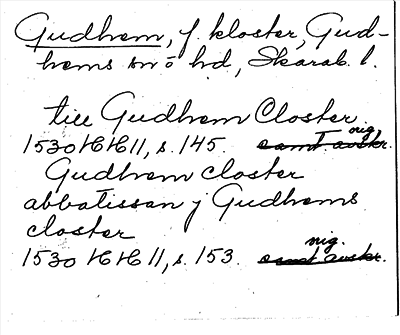 Gudhem, f. kloster, Gud-
hems sn o hd, Skarab. l.
till Gudhem Closter
1530 HH 11, s. 145. orig. samt avskr.
Gudhem closter
abbatissan j Gudhems
closter
1530 HH 11, s. 153. orig. samt avskr.